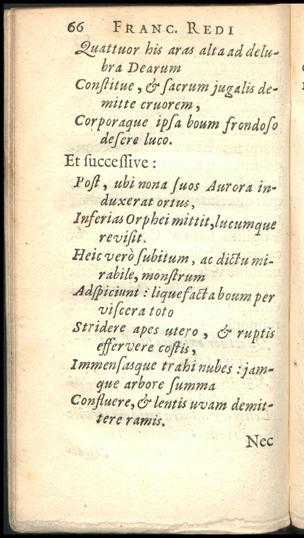 66 FRANC. REDI
Quattuor his aras alta ad delu-
bra Dearum
Conſtitue, & ſacrum jugalis de-
mitte cruorem,
Corporaque ipſa boum frondoſo
deſere luco.
Et ſucceſſive :
Poſt, ubi nona ſuos Aurora in-
duxerat ortus,
Inferias Orphei mittit, lucumque
reviſit.
Heic verò ſubitum, ac dictu mi-
rabile, monſtrum
Adſpiciunt : liquefacta boum per
viſcera toto
Stridere apes utero, & ruptis
effervere coſtis,
Immenſasque trahi nubes : jam-
que arbore ſumma
Confluere, & lentis uvam demit-
tere ramis.
Nec